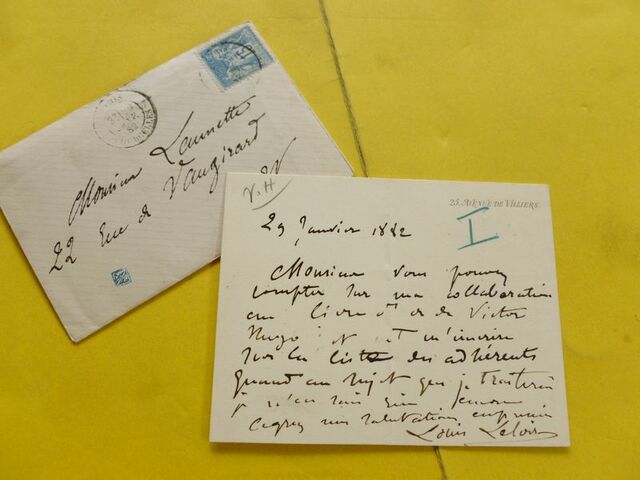 Monsieur Launette
22 Rue de Vaugirard
V.H
25, AVENUE DE VILLIERS.
I
29 Janvier 1882
Monsieur vous pouvez
compter sur ma collaboration
au livre d'or de Victor
Hugo et m'inscrire
sur la liste des adhérents
Quant au sujet que je traiterai
je n'en sais rien encore
Agréez mes salutations empressées
Louis Leloir